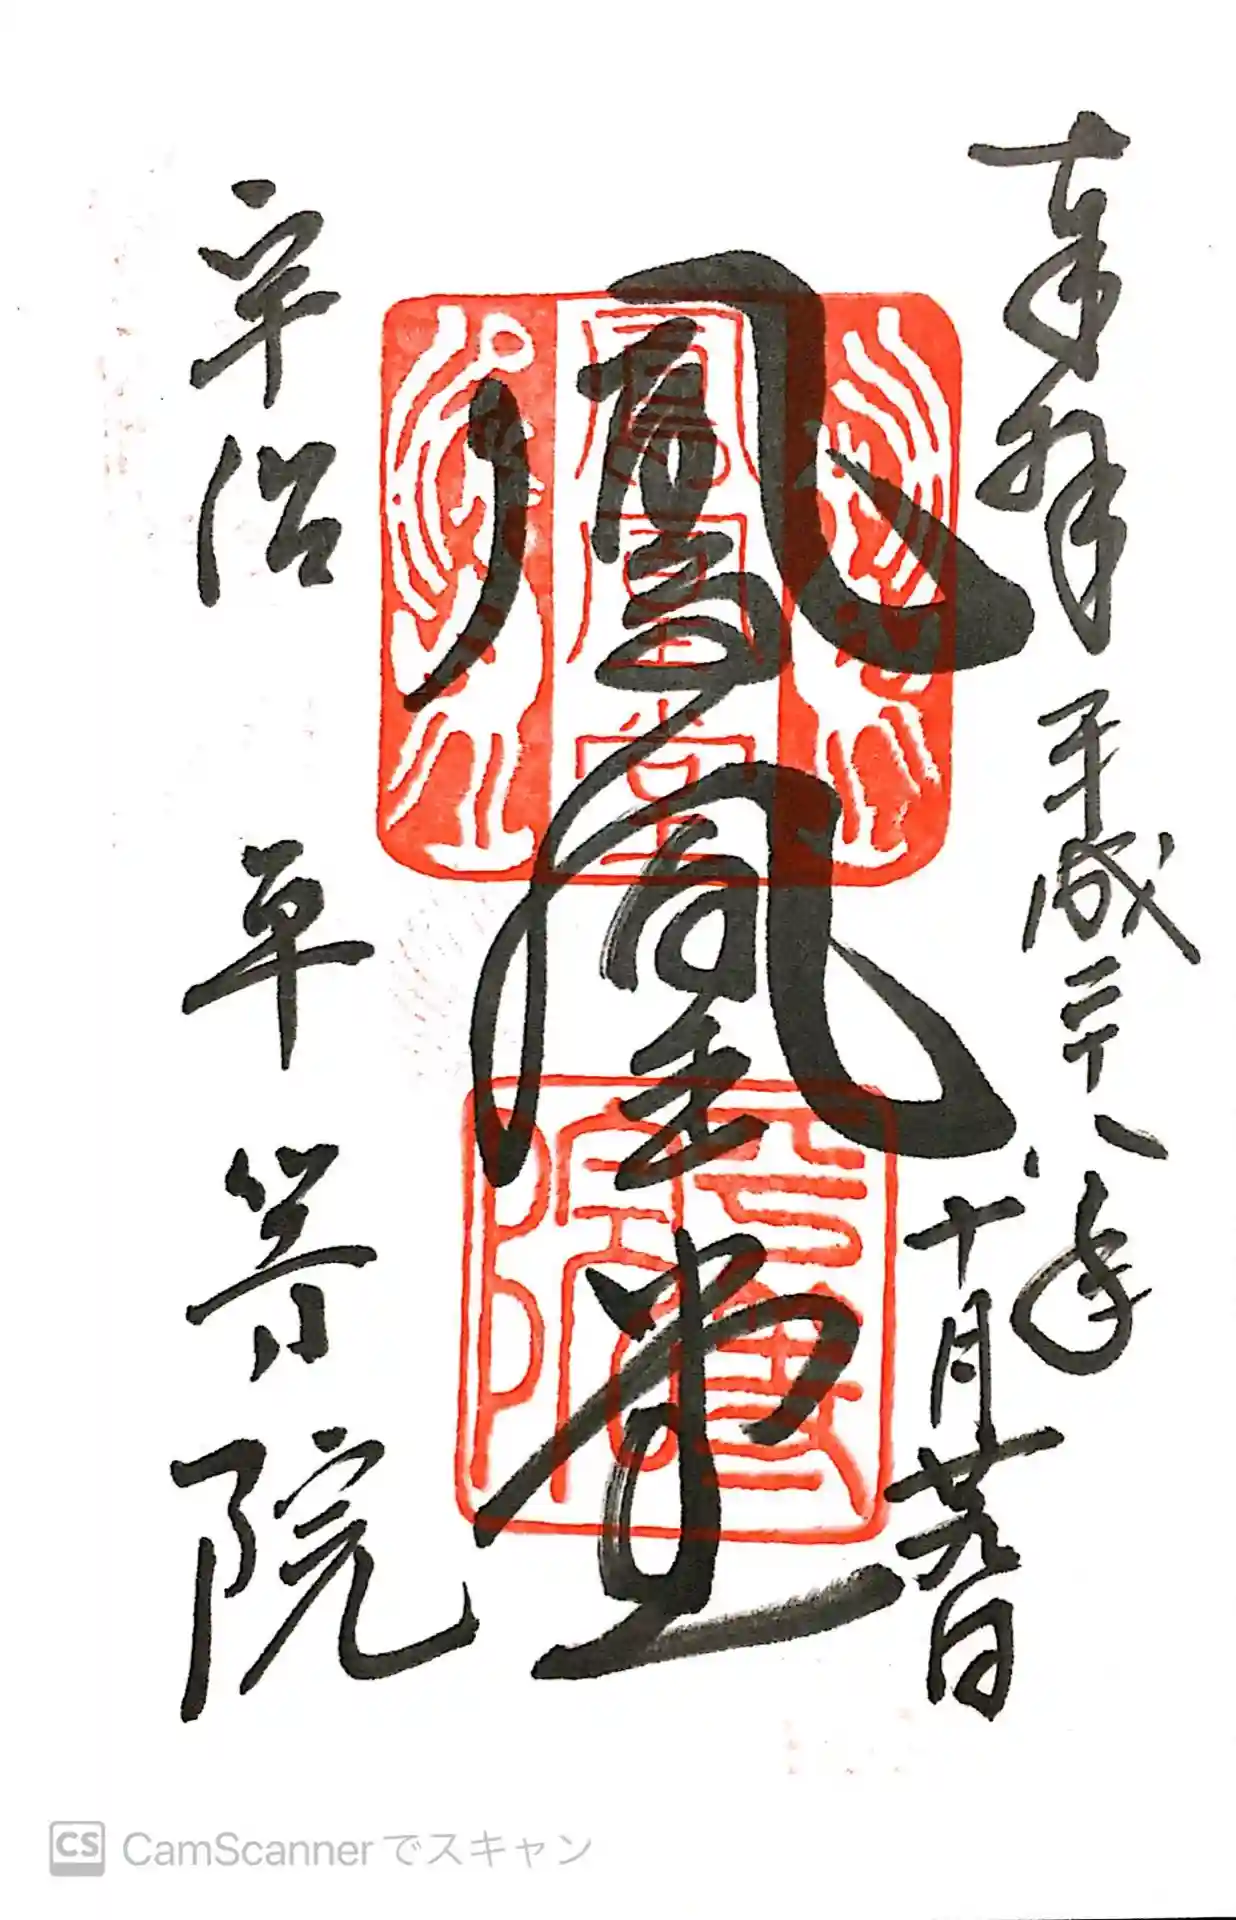 奉拝 平成二十八年
十月廿九日
鳳凰堂
宇治 平等院
鳳凰堂
平等院
CS CamScannerでスキャン